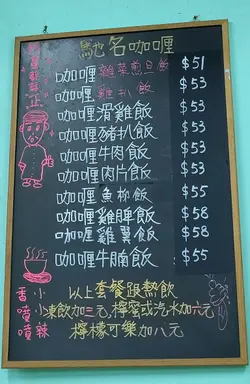 馳名咖喱
咖喱雜菜煎旦飯 $51
咖喱雞扒飯 $53
咖喱滑雞飯 $53
咖喱豬扒飯 $53
咖喱牛肉飯 $53
咖喱肉片飯 $53
咖喱魚柳飯 $55
咖喱雞脾飯 $58
咖喱雞翼飯 $58
咖喱牛腩飯 $55
以上套餐跟熱飲
凍飲加三元,檸蜜或汽水加六元
檸檬可樂加八元
香噴噴
小小辣